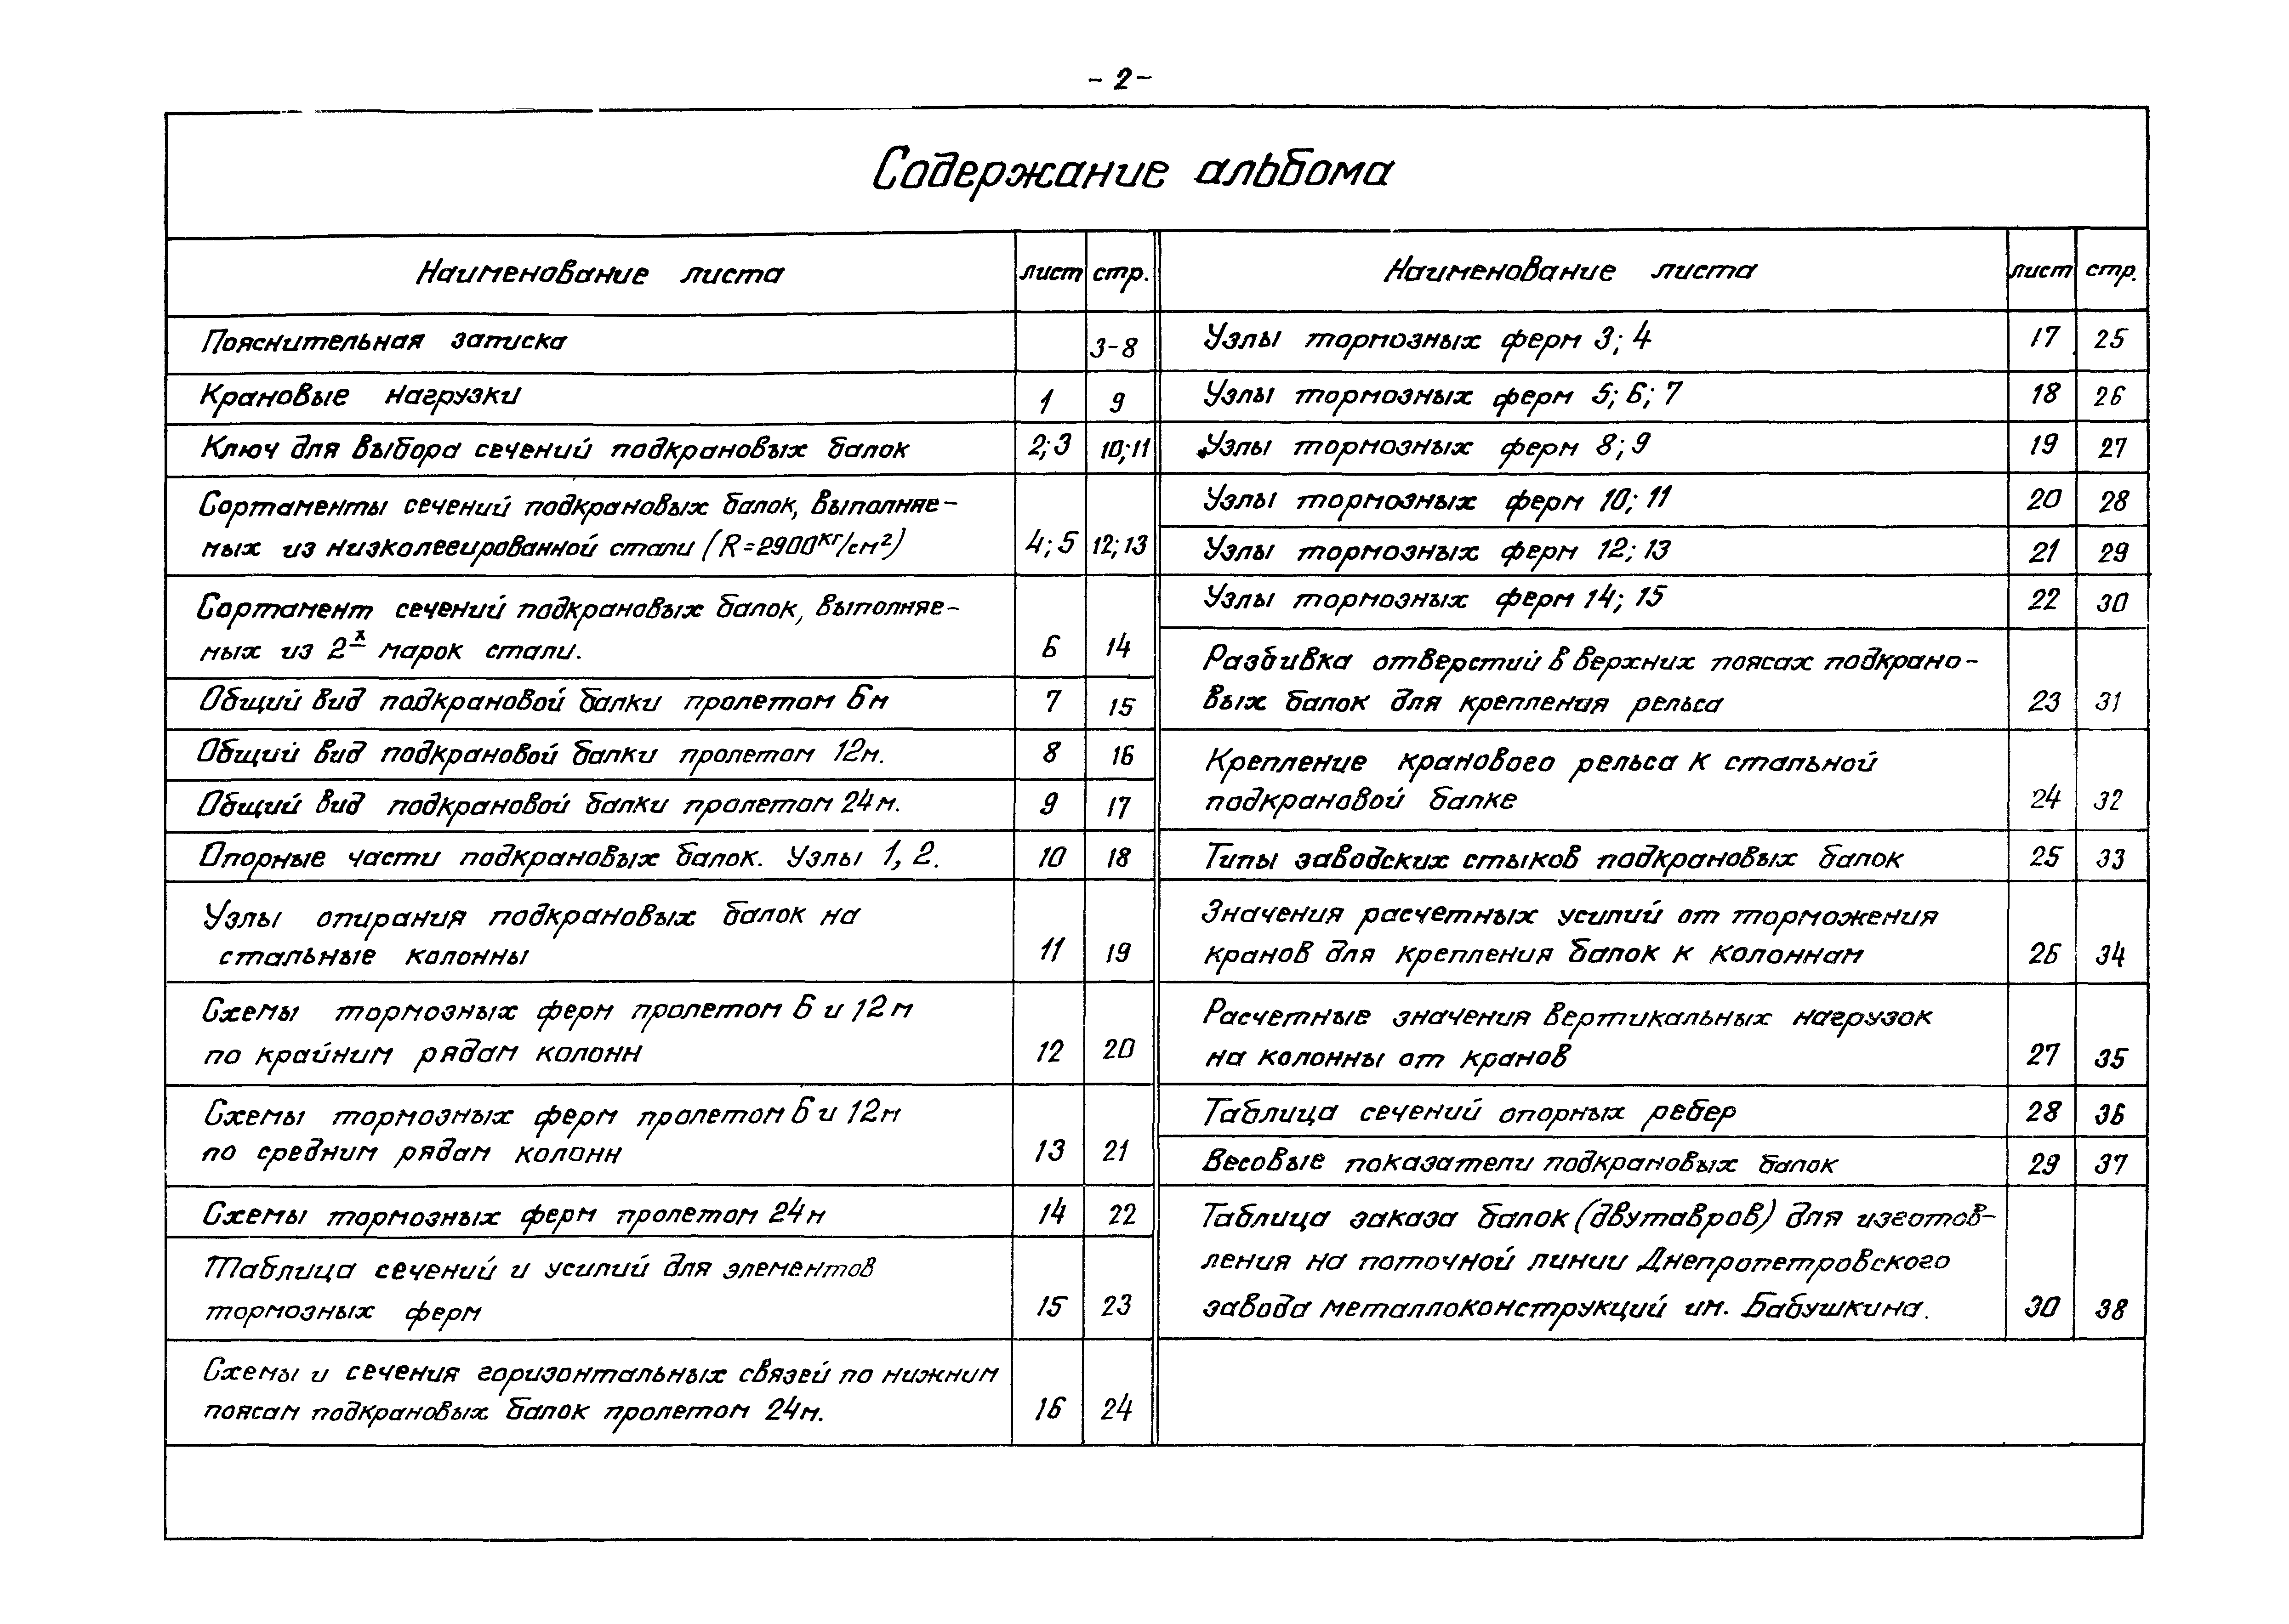 - 2 -
Содержание альбома
Наименование листа лист стр.
Пояснительная записка 3-8
Крановые нагрузки 1 9
Ключ для выбора сечений подкрановых балок 2; 3 10; 11
Сортаменты сечений подкрановых балок, выполняе-
мых из низколегированной стали (R=2900кг/см²) 4; 5 12; 13
Сортамент сечений подкрановых балок, выполняе-
мых из 2х марок стали. 6 14
Общий вид подкрановой балки пролетом 6м 7 15
Общий вид подкрановой балки пролетом 12м. 8 16
Общий вид подкрановой балки пролетом 24м. 9 17
Опорные части подкрановых балок. Узлы 1, 2. 10 18
Узлы опирания подкрановых балок на
стальные колонны 11 19
Схемы тормозных ферм пролетом 6 и 12м
по крайним рядам колонн 12 20
Схемы тормозных ферм пролетом 6 и 12м
по средним рядам колонн 13 21
Схемы тормозных ферм пролетом 24м 14 22
Таблица сечений и усилий для элементов
тормозных ферм 15 23
Схемы и сечения горизонтальных связей по нижним
поясам подкрановых балок пролетом 24м. 16 24
Наименование листа лист стр.
Узлы тормозных ферм 3; 4 17 25
Узлы тормозных ферм 5; 6; 7 18 26
Узлы тормозных ферм 8; 9 19 27
Узлы тормозных ферм 10; 11 20 28
Узлы тормозных ферм 12; 13 21 29
Узлы тормозных ферм 14; 15 22 30
Разбивка отверстий в верхних поясах подкрано-
вых балок для крепления рельса 23 31
Крепление кранового рельса к стальной
подкрановой балке 24 32
Типы заводских стыков подкрановых балок 25 33
Значения расчетных усилий от торможения
кранов для крепления балок к колоннам 26 34
Расчетные значения вертикальных нагрузок
на колонны от кранов 27 35
Таблица сечений опорных ребер 28 36
Весовые показатели подкрановых балок 29 37
Таблица заказа балок (двутавров) для изготов-
ления на поточной линии Днепропетровского
завода металлоконструкций им. Бабушкина. 30 38